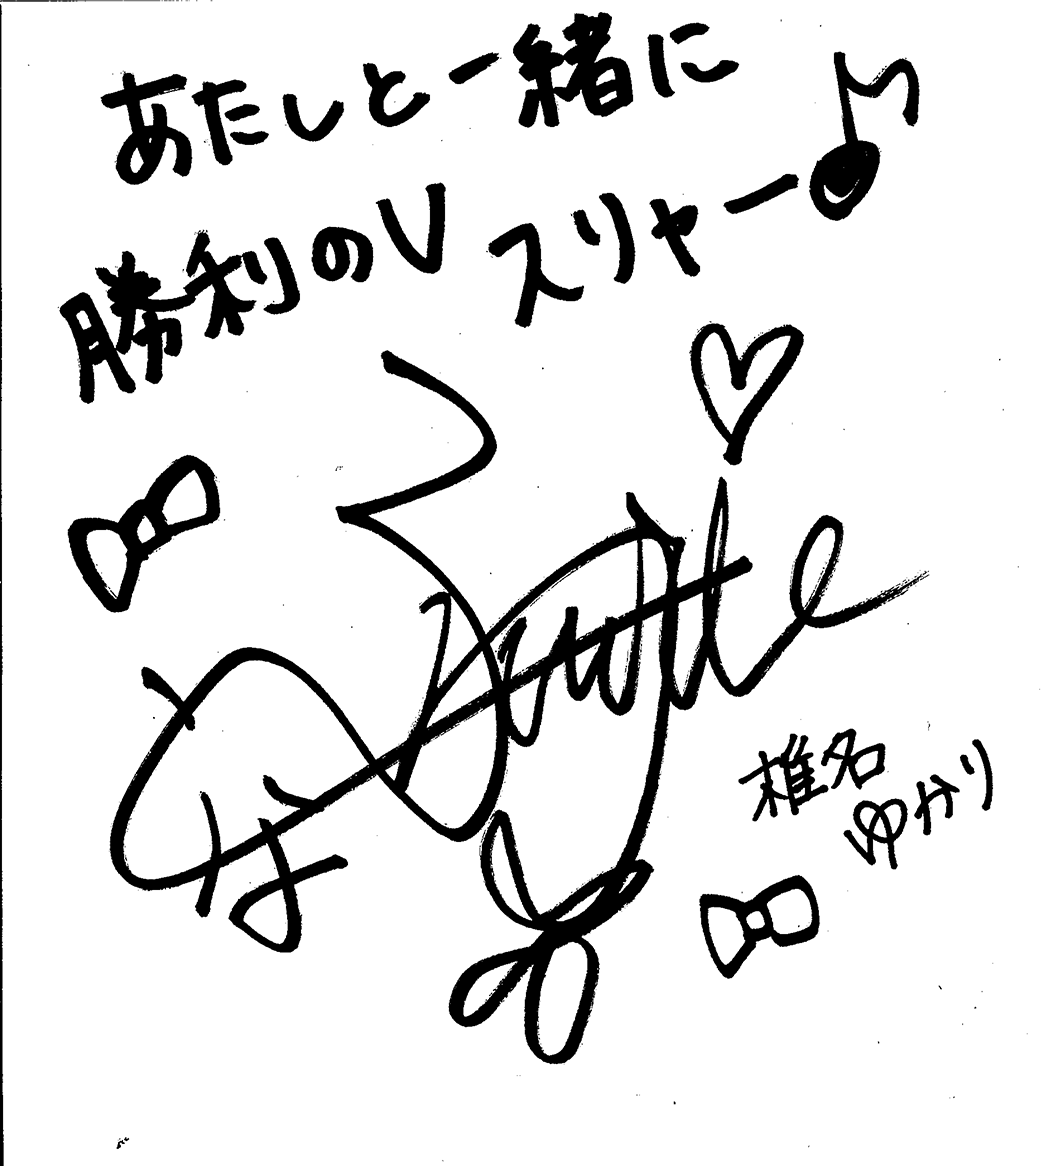 あたしと一緒に
勝利のVスリャー♪
椎名
ゆかり